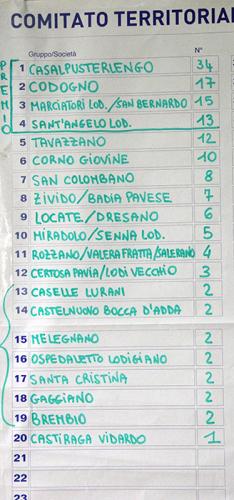 COMITATO TERRITORIA
PREMIO
Gruppo/Società N°
1 CASALPUSTERLENGO 34
2 CODOGNO 17
3 MARCIATORI LOD./SAN BERNARDO 15
4 SANT'ANGELO LOD. 13
5 TAVAZZANO 12
6 CORNO GIOVINE 10
7 SAN COLOMBANO 8
8 ZIVIDO/BADIA PAVESE 7
9 LOCATE/DRESANO 6
10 MIRADOLO/SENNA LOD. 5
11 ROZZANO/VALERA FRATTA/SALERANO 4
12 CERTOSA PAVIA/LODI VECCHIO 3
13 CASELLE LURANI 2
14 CASTELNUOVO BOCCA D'ADDA 2
15 MELEGNANO 2
16 OSPEDALETTO LODIGIANO 2
17 SANTA CRISTINA 2
18 GAGGIANO 2
19 BREMBIO 2
20 CASTIRAGA VIDARDO 1
21
22
23